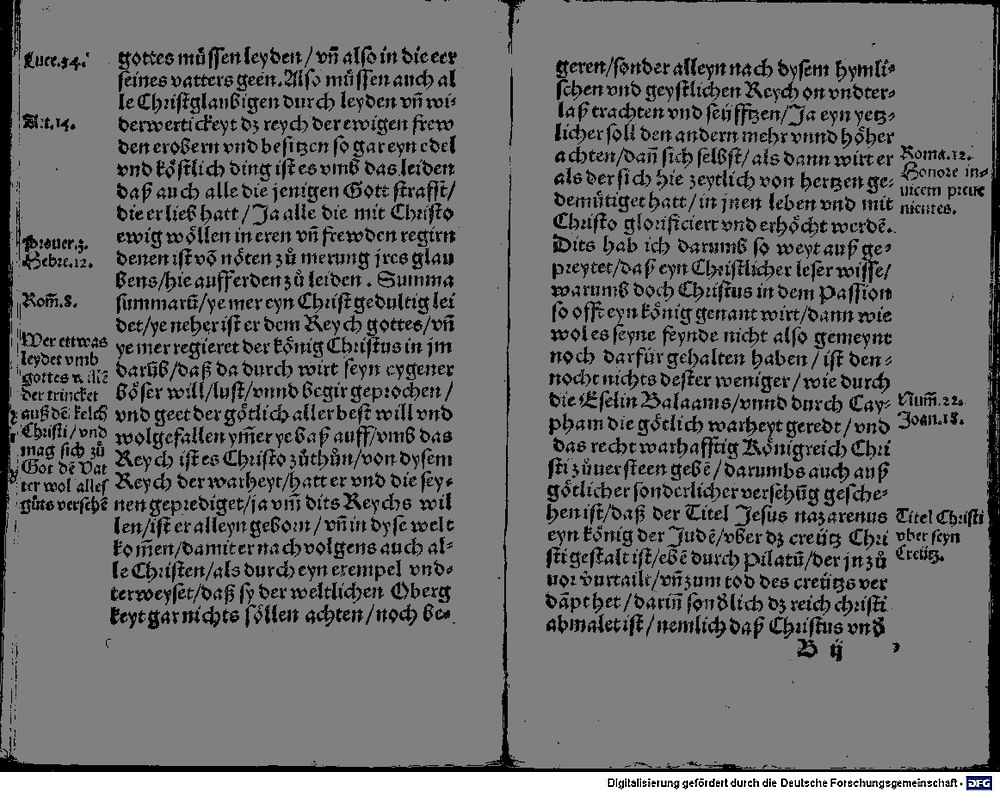 Luce.24.
Act.14.
Prouer.3.
Hebre.12.
Rom̃.8.
Wer ettwas
leydet vmb
gottes willẽ
der trincket
auß dẽ kelch
Christi/vnd
mag sich zů
Got dẽ Vat
ter wol alles
gůts versehẽ
gottes můssen leyden/vñ also in die eer
seines vatters geen. Also můssen auch al
le Christglaubigen durch leyden vñ wi-
derwertickeyt dz reych der ewigen frew
den erobern vnd besitzen so gar eyn edel
vnd köstlich ding ist es vmb das leiden
daß auch alle die jenigen Gott strafft/
die er lieb hatt/Ja alle die mit Christo
ewig wöllen in eren vñ frewden regirn
denen ist võ nöten zů merung jres glau
bens/hie auff erden zů leiden. Summa
summarũ/ye mer eyn Christ gedultig lei
det/ye neher ist er dem Reych gottes/vñ
ye mer regieret der könig Christus in jm
darũb/daß da durch wirt seyn eygener
böser will/lust/vnnd begir geprochen/
vnd geet der götlich aller best will vnd
wolgefallen ym̃er ye baß auff/vmb das
Reych ist es Christo zůthůn/von dysem
Reych der warheyt/hatt er vnd die sey-
nen geprediget/ja vm̃ dits Reychs wil
len/ist er alleyn geborn/vñ in dyse welt
kom̃en/damit er nachvolgens auch al-
le Christen/als durch eyn exempel vnd-
terweyset/daß sy der weltlichen Oberg
keyt gar nichts söllen achten/noch be-
geren/sonder alleyn nach dysem hymli-
schen vnd geystlichen Reych on vndter-
laß trachten vnd seüfftzen/Ja eyn yetz-
licher soll den andern mehr vnnd höher
achten/dañ sich selbst/als dann wirt er
als der sich hie zeytlich von hertzen ge-
demütiget hatt/in jnen leben vnd mit
Christo glorificiert vnd erhöcht werdẽ.
Dits hab ich darumb so weyt auß ge-
preytet/daß eyn Christlicher leser wisse/
warumb doch Christus in dem Passion
so offt eyn könig genant wirt/dann wie
wol es seyne feynde nicht also gemeynt
noch darfür gehalten haben/ist den-
nocht nichts dester weniger/wie durch
die Eselin Balaams/vnnd durch Cay-
pham die götlich warheyt geredt/vnd
das recht warhafftig Königreich Chri
sti zůuersteen gebẽ/darumbs auch auß
götlicher sonderlicher versehũg gesche-
hen ist/daß der Titel Jesus nazarenus
eyn könig der Judẽ/vber dz creütz Chri
sti gestalt ist/ebẽ durch Pilatũ/der jn zů
uor vurtailt/vñ zum tod des creützs ver
dãpt het/dariñ sonðlich dz reich christi
abmalet ist/nemlich daß Christus vnð
B ij
Roma.12.
Honore in-
uicem preue
nientes.
Num̃.22.
Joan.18.
Titel Christi
vber seyn
Creütz.
Digitalisierung gefördert durch die Deutsche Forschungsgemeinschaft - DFG